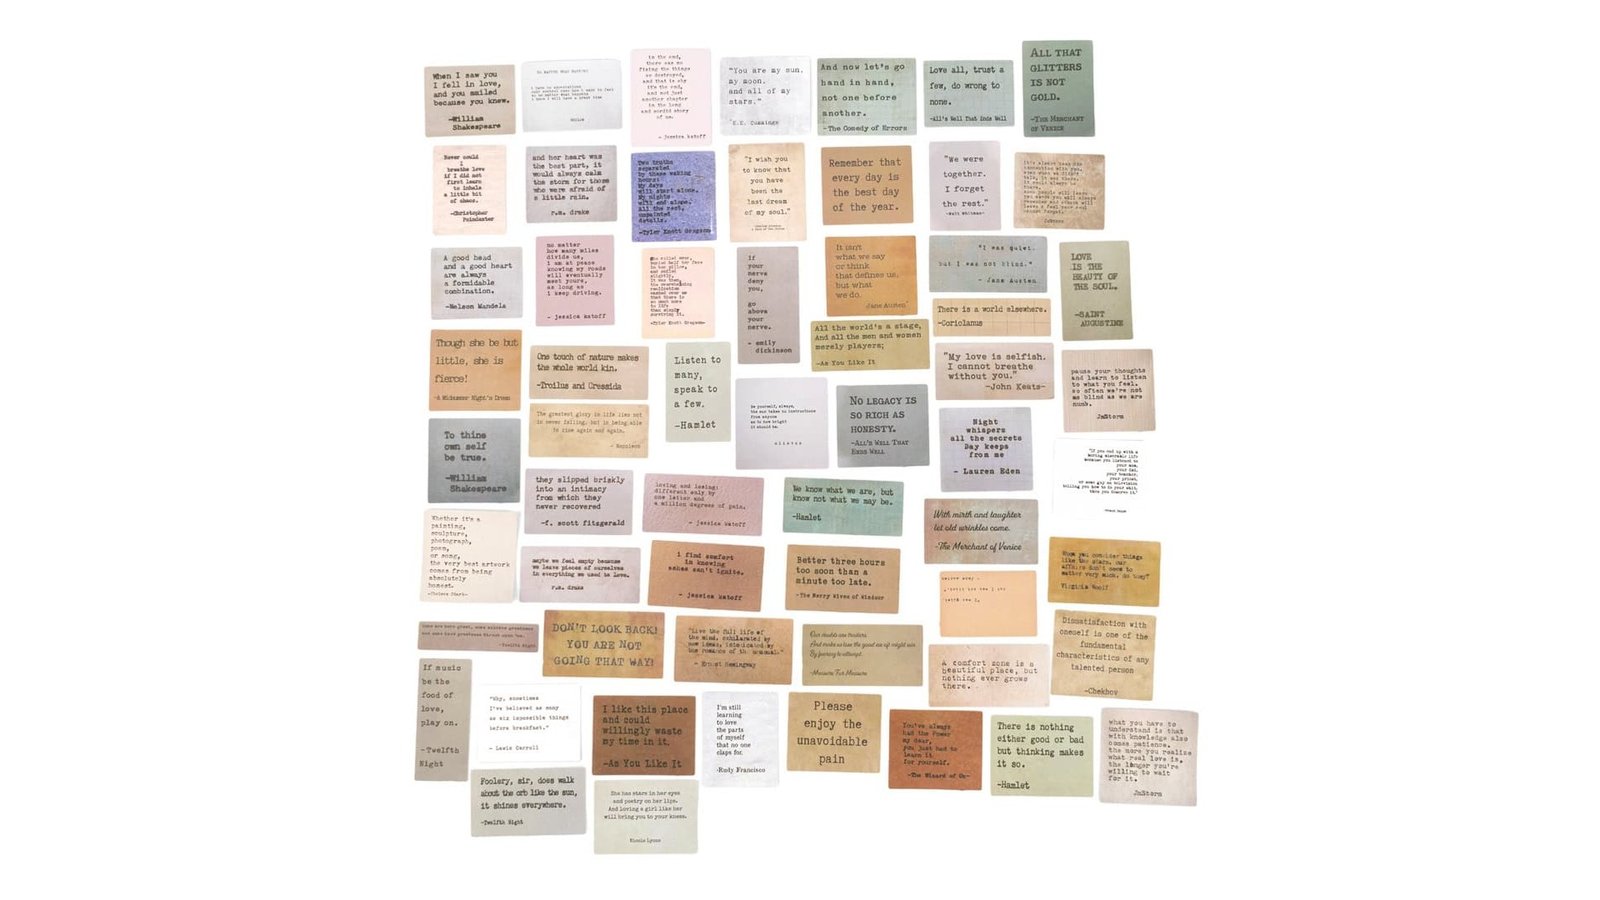 When I saw you
I fell in love,
and you smiled
because you knew.
-William
Shakespeare
No matter what matter!
in the end,
there was no
fixing the things
we destroyed,
and that is why
it's the end,
and not just
another chapter
in the long
and sordid story
of us.
- jessica katoff
"You are my sun,
my moon,
and all of my
stars."
E.E. Cummings
And now let's go
hand in hand,
not one before
another.
-The Comedy of Errors
Love all, trust a
few, do wrong to
none.
-All's Well That Ends Well
ALL THAT
GLITTERS
IS NOT
GOLD.
-THE MERCHANT
OF VENICE
Never could
I
breathe love
if I did not
first learn
to inhale
a little bit
of chaos.
-Christopher
Poindexter
and her heart was
the best part, it
would always calm
the storm for those
who were afraid of
a little rain.
r.m. drake
Two truths
separated
by these waking
hours:
My days
will start alone.
My nights
will end alone.
All the rest,
unpainted
details.
-Tyler Knott Gregson-
"I wish you
to know that
you have
been the
last dream
of my soul."
Remember that
every day is
the best day
of the year.
"We were
together.
I forget
the rest."
-Walt Whitman-
JmStorm
A good head
and a good heart
are always
a formidable
combination.
-Nelson Mandela
no matter
how many miles
divide us,
i am at peace
knowing my roads
will eventually
meet yours,
as long as
i keep driving.
- jessica katoff
She rolled over,
buried half her face
in her pillow,
and smiled
slightly.
It was then,
the overwhelming
realization
washed over us
that there is
so much more
to life
than simply
surviving it.
-Tyler Knott Gregson-
if
your
nerve
deny
you,
go
above
your
nerve.
- emily
dickinson
It isn't
what we say
or think
that defines us,
but what
we do.
Jane Austen
"I was quiet,
but I was not blind."
- Jane Austen
LOVE
IS THE
BEAUTY OF
THE SOUL.
-SAINT
AUGUSTINE
There is a world elsewhere.
-Coriolanus
All the world's a stage,
And all the men and women
merely players;
-As You Like It
Though she be but
little, she is
fierce!
-A Midsummer Night's Dream
One touch of nature makes
the whole world kin.
-Troilus and Cressida
Listen to
many,
speak to
a few.
-Hamlet
"My love is selfish.
I cannot breathe
without you."
-John Keats-
pause your thoughts
and learn to listen
to what you feel.
so often we're not
as blind as we are
numb.
JmStorm
The greatest glory in life lies not
in never falling, but in being able
to rise again and again.
- Napoleon
be yourself, always,
the sun takes no instructions
from anyone
as to how bright
it should be.
NO LEGACY IS
SO RICH AS
HONESTY.
-ALL'S WELL THAT
ENDS WELL
Night
whispers
all the secrets
Day keeps
from me
- Lauren Eden
To thine
own self
be true.
-William
Shakespeare
"If you end up with a
boring miserable life
because you listened to
your mom,
your dad,
your teacher,
your priest,
or some guy on television
telling you how to do your shit,
then you deserve it."
they slipped briskly
into an intimacy
from which they
never recovered
-f. scott fitzgerald
loving and losing:
different only by
one letter and
a million degrees of pain.
- jessica katoff
We know what we are, but
know not what we may be.
-Hamlet
With mirth and laughter
let old wrinkles come.
-The Merchant of Venice
Whether it's a
painting,
sculpture,
photograph,
poem,
or song,
the very best artwork
comes from being
absolutely
honest.
maybe we feel empty because
we leave pieces of ourselves
in everything we used to love.
r.m. drake
i find comfort
in knowing
ashes can't ignite.
- jessica katoff
Better three hours
too soon than a
minute too late.
-The Merry Wives of Windsor
When you consider things
like the stars, our
affairs don't seem to
matter very much, do they?
Virginia Woolf
Some are born great, some achieve greatness
and some have greatness thrust upon 'em.
-Twelfth Night
DON'T LOOK BACK!
YOU ARE NOT
GOING THAT WAY!
"Live the full life of
the mind, exhilarated by
new ideas, intoxicated by
the romance of th unusual."
- Ernest Hemingway
Our doubts are traitors
And make us lose the good we oft might win
By fearing to attempt.
-Measure For Measure
A comfort zone is a
beautiful place, but
nothing ever grows
there.
Dissatisfaction with
oneself is one of the
fundamental
characteristics of any
talented person
-Chekhov
If music
be the
food of
love,
play on.
-Twelfth
Night
"Why, sometimes
I've believed as many
as six impossible things
before breakfast."
- Lewis Carroll
I like this place
and could
willingly waste
my time in it.
-As You Like It
I'm still
learning
to love
the parts
of myself
that no one
claps for.
-Rudy Francisco
Please
enjoy the
unavoidable
pain
You've always
had the Power
my dear,
you just had to
learn it
for yourself.
-The Wizard of Oz-
There is nothing
either good or bad
but thinking makes
it so.
-Hamlet
what you have to
understand is that
with knowledge also
comes patience.
the more you realize
what real love is,
the longer you're
willing to wait
for it.
JmStorm
Foolery, sir, does walk
about the orb like the sun,
it shines everywhere.
-Twelfth Night
She has stars in her eyes
and poetry on her lips.
And loving a girl like her
will bring you to your knees.